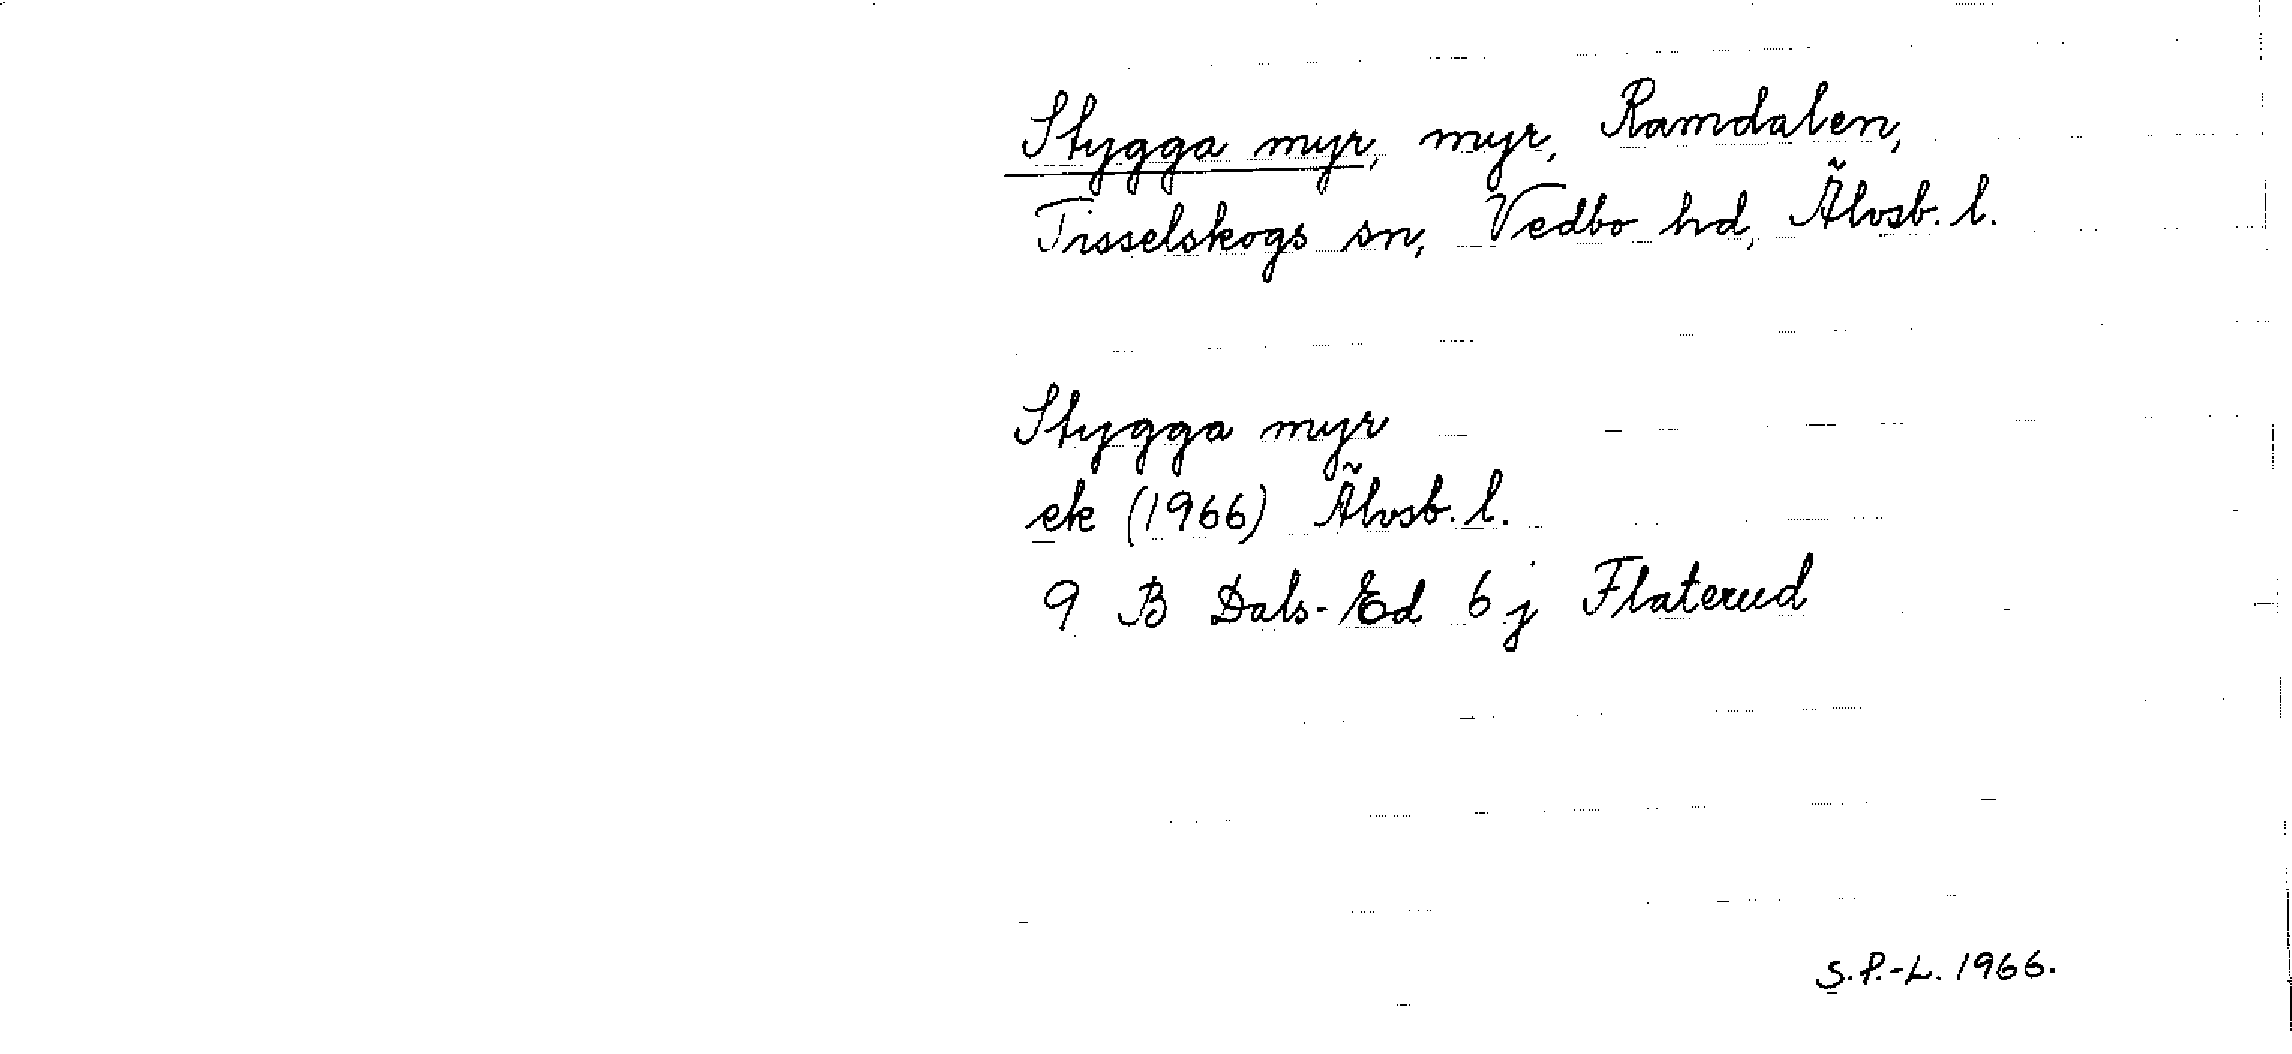 Stygga myr, myr, Ramdalen,
Tisselskogs sn, Vedbo hd, Älvsb. l.
Stygga myr
ek (1966) Älvsb. l.
9 B Dals-Ed 6 j Flaterud
S.P.-L. 1966.